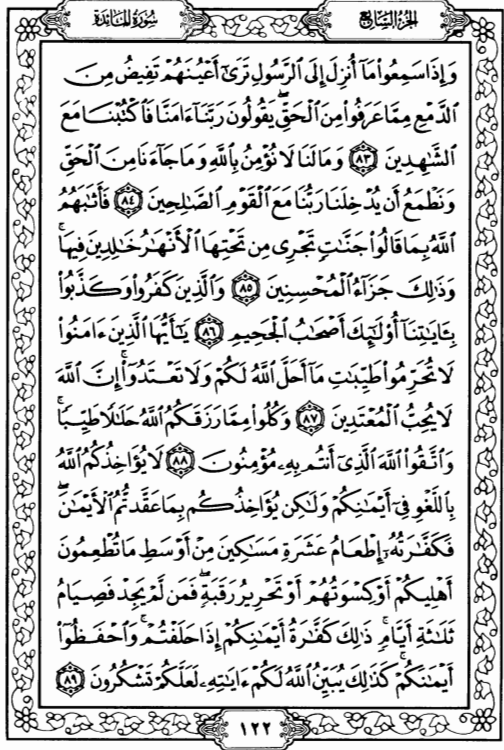 سُورَةُ المَائِدَةِ
الجُزءُ السَّابِعُ
وَإِذَا سَمِعُوا۟ مَآ أُنزِلَ إِلَى ٱلرَّسُولِ تَرَىٰٓ أَعْيُنَهُمْ تَفِيضُ مِنَ
ٱلدَّمْعِ مِمَّا عَرَفُوا۟ مِنَ ٱلْحَقِّ ۖ يَقُولُونَ رَبَّنَآ ءَامَنَّا فَٱكْتُبْنَا مَعَ
ٱلشَّٰهِدِينَ ٨٣ وَمَا لَنَا لَا نُؤْمِنُ بِٱللَّهِ وَمَا جَآءَنَا مِنَ ٱلْحَقِّ
وَنَطْمَعُ أَن يُدْخِلَنَا رَبُّنَا مَعَ ٱلْقَوْمِ ٱلصَّٰلِحِينَ ٨٤ فَأَثَٰبَهُمُ
ٱللَّهُ بِمَا قَالُوا۟ جَنَّٰتٍ تَجْرِى مِن تَحْتِهَا ٱلْأَنْهَٰرُ خَٰلِدِينَ فِيهَا ۚ
وَذَٰلِكَ جَزَآءُ ٱلْمُحْسِنِينَ ٨٥ وَٱلَّذِينَ كَفَرُوا۟ وَكَذَّبُوا۟
بِـَٔايَٰتِنَآ أُو۟لَٰٓئِكَ أَصْحَٰبُ ٱلْجَحِيمِ ٨٦ يَٰٓأَيُّهَا ٱلَّذِينَ ءَامَنُوا۟
لَا تُحَرِّمُوا۟ طَيِّبَٰتِ مَآ أَحَلَّ ٱللَّهُ لَكُمْ وَلَا تَعْتَدُوٓا۟ ۚ إِنَّ ٱللَّهَ
لَا يُحِبُّ ٱلْمُعْتَدِينَ ٨٧ وَكُلُوا۟ مِمَّا رَزَقَكُمُ ٱللَّهُ حَلَٰلًا طَيِّبًا ۚ
وَٱتَّقُوا۟ ٱللَّهَ ٱلَّذِىٓ أَنتُم بِهِۦ مُؤْمِنُونَ ٨٨ لَا يُؤَاخِذُكُمُ ٱللَّهُ
بِٱللَّغْوِ فِىٓ أَيْمَٰنِكُمْ وَلَٰكِن يُؤَاخِذُكُم بِمَا عَقَّدتُّمُ ٱلْأَيْمَٰنَ ۖ
فَكَفَّٰرَتُهُۥٓ إِطْعَامُ عَشَرَةِ مَسَٰكِينَ مِنْ أَوْسَطِ مَا تُطْعِمُونَ
أَهْلِيكُمْ أَوْ كِسْوَتُهُمْ أَوْ تَحْرِيرُ رَقَبَةٍ ۖ فَمَن لَّمْ يَجِدْ فَصِيَامُ
ثَلَٰثَةِ أَيَّامٍ ۚ ذَٰلِكَ كَفَّٰرَةُ أَيْمَٰنِكُمْ إِذَا حَلَفْتُمْ ۚ وَٱحْفَظُوٓا۟
أَيْمَٰنَكُمْ ۚ كَذَٰلِكَ يُبَيِّنُ ٱللَّهُ لَكُمْ ءَايَٰتِهِۦ لَعَلَّكُمْ تَشْكُرُونَ ٨٩
١٢٢